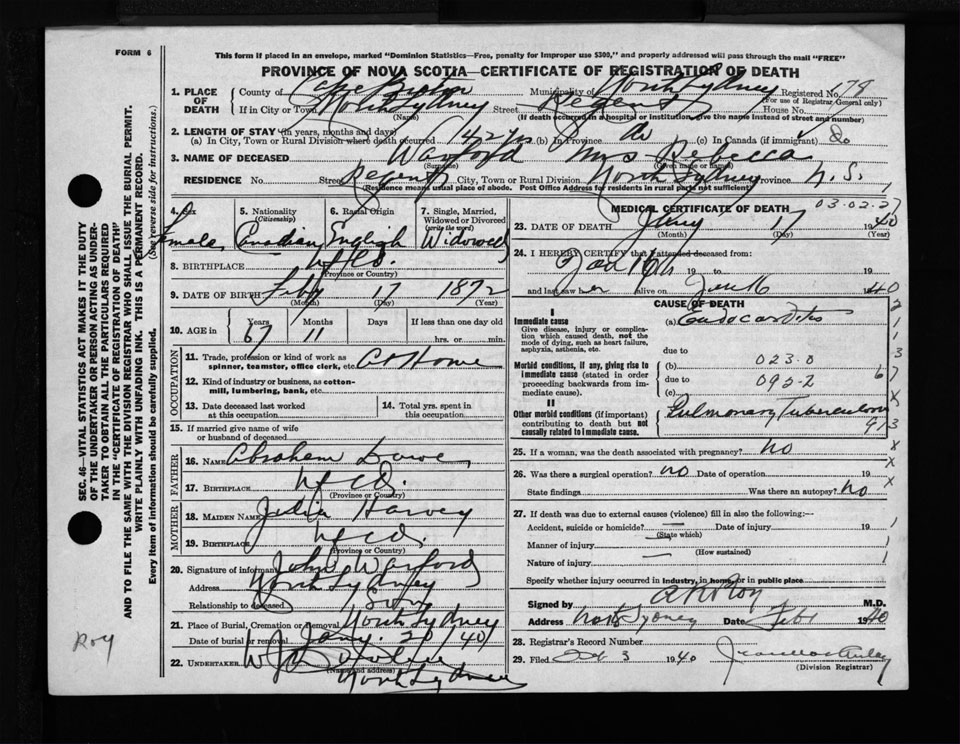 FORM 6
This form if placed in an envelope, marked "Dominion Statistics—Free, penalty for improper use $300," and properly addressed will pass through the mail "FREE"
PROVINCE OF NOVA SCOTIA—CERTIFICATE OF REGISTRATION OF DEATH
1. PLACE OF DEATH County of Cape Breton Municipality of North Sydney Registered No. 178
(For use of Registrar General only)
If in City or Town North Sydney Street Regent House No.
(Name) (If death occurred in a hospital or institution, give the name instead of street and number)
2. LENGTH OF STAY (in years, months and days)
(a) In City, Town or Rural Division where death occurred 42 yrs (b) In Province do (c) In Canada (if immigrant) do
3. NAME OF DECEASED Warford Mrs Rebecca
(Surname) (Given name or names)
RESIDENCE No. Street Regent City, Town or Rural Division North Sydney Province N.S.
(Residence means usual place of abode. Post Office Address for residents in rural parts not sufficient)
4. Sex Female
5. Nationality (Citizenship) Canadian
6. Racial Origin English
7. Single, Married, Widowed or Divorced (write the word) Widowed
8. BIRTHPLACE Nfld.
(Province or Country)
9. DATE OF BIRTH Feby 17 1872
(Month) (Day) (Year)
10. AGE in Years Months Days If less than one day old
67 11 hrs. or min.
OCCUPATION
11. Trade, profession or kind of work as spinner, teamster, office clerk, etc. At Home
12. Kind of industry or business, as cotton-mill, lumbering, bank, etc.
13. Date deceased last worked at this occupation
14. Total yrs. spent in this occupation
15. If married give name of wife or husband of deceased
FATHER
16. NAME Abraham Dawe
17. BIRTHPLACE Nfld.
(Province or Country)
MOTHER
18. MAIDEN NAME Julia Harvey
19. BIRTHPLACE Nfld.
(Province or Country)
20. Signature of informant John Warford
Address North Sydney
Relationship to deceased Son
21. Place of Burial, Cremation or Removal North Sydney
Date of burial or removal Jany. 20/40
22. UNDERTAKER
(Name and address)
North Sydney
MEDICAL CERTIFICATE OF DEATH
03.02.27
23. DATE OF DEATH Jany 17 1940
(Month) (Day) (Year)
24. I HEREBY CERTIFY that I attended deceased from:
19 to 19
and last saw her alive on Jan 16 1940
CAUSE OF DEATH
I
Immediate cause (a) Endocarditis
Give disease, injury or complication which caused death, not the mode of dying, such as heart failure, asphyxia, asthenia, etc.
due to
Morbid conditions, if any, giving rise to immediate cause (stated in order proceeding backwards from immediate cause) (b) 023.0
due to 095-2
(c)
II
Other morbid conditions (if important) contributing to death but not causally related to immediate cause. Pulmonary Tuberculosis
25. If a woman, was the death associated with pregnancy? no
26. Was there a surgical operation? no Date of operation 19
State findings Was there an autopsy? no
27. If death was due to external causes (violence) fill in also the following:—
Accident, suicide or homicide? — Date of injury 19
(State which)
Manner of injury —
(How sustained)
Nature of injury —
Specify whether injury occurred in industry, in home, or in public place
Signed by Roy M.D.
Address North Sydney Date Feb 1 1940
28. Registrar's Record Number
29. Filed 3 1940
(Division Registrar)
SEC. 46—VITAL STATISTICS ACT MAKES IT THE DUTY
OF THE UNDERTAKER OR PERSON ACTING AS UNDER-
TAKER TO OBTAIN ALL THE PARTICULARS REQUIRED
IN THE "CERTIFICATE OF REGISTRATION OF DEATH"
AND TO FILE THE SAME WITH THE DIVISION REGISTRAR WHO SHALL ISSUE THE BURIAL PERMIT.
WRITE PLAINLY WITH UNFADING INK. THIS IS A PERMANENT RECORD.
Every item of information should be carefully supplied. (See reverse side for instructions.)
Roy